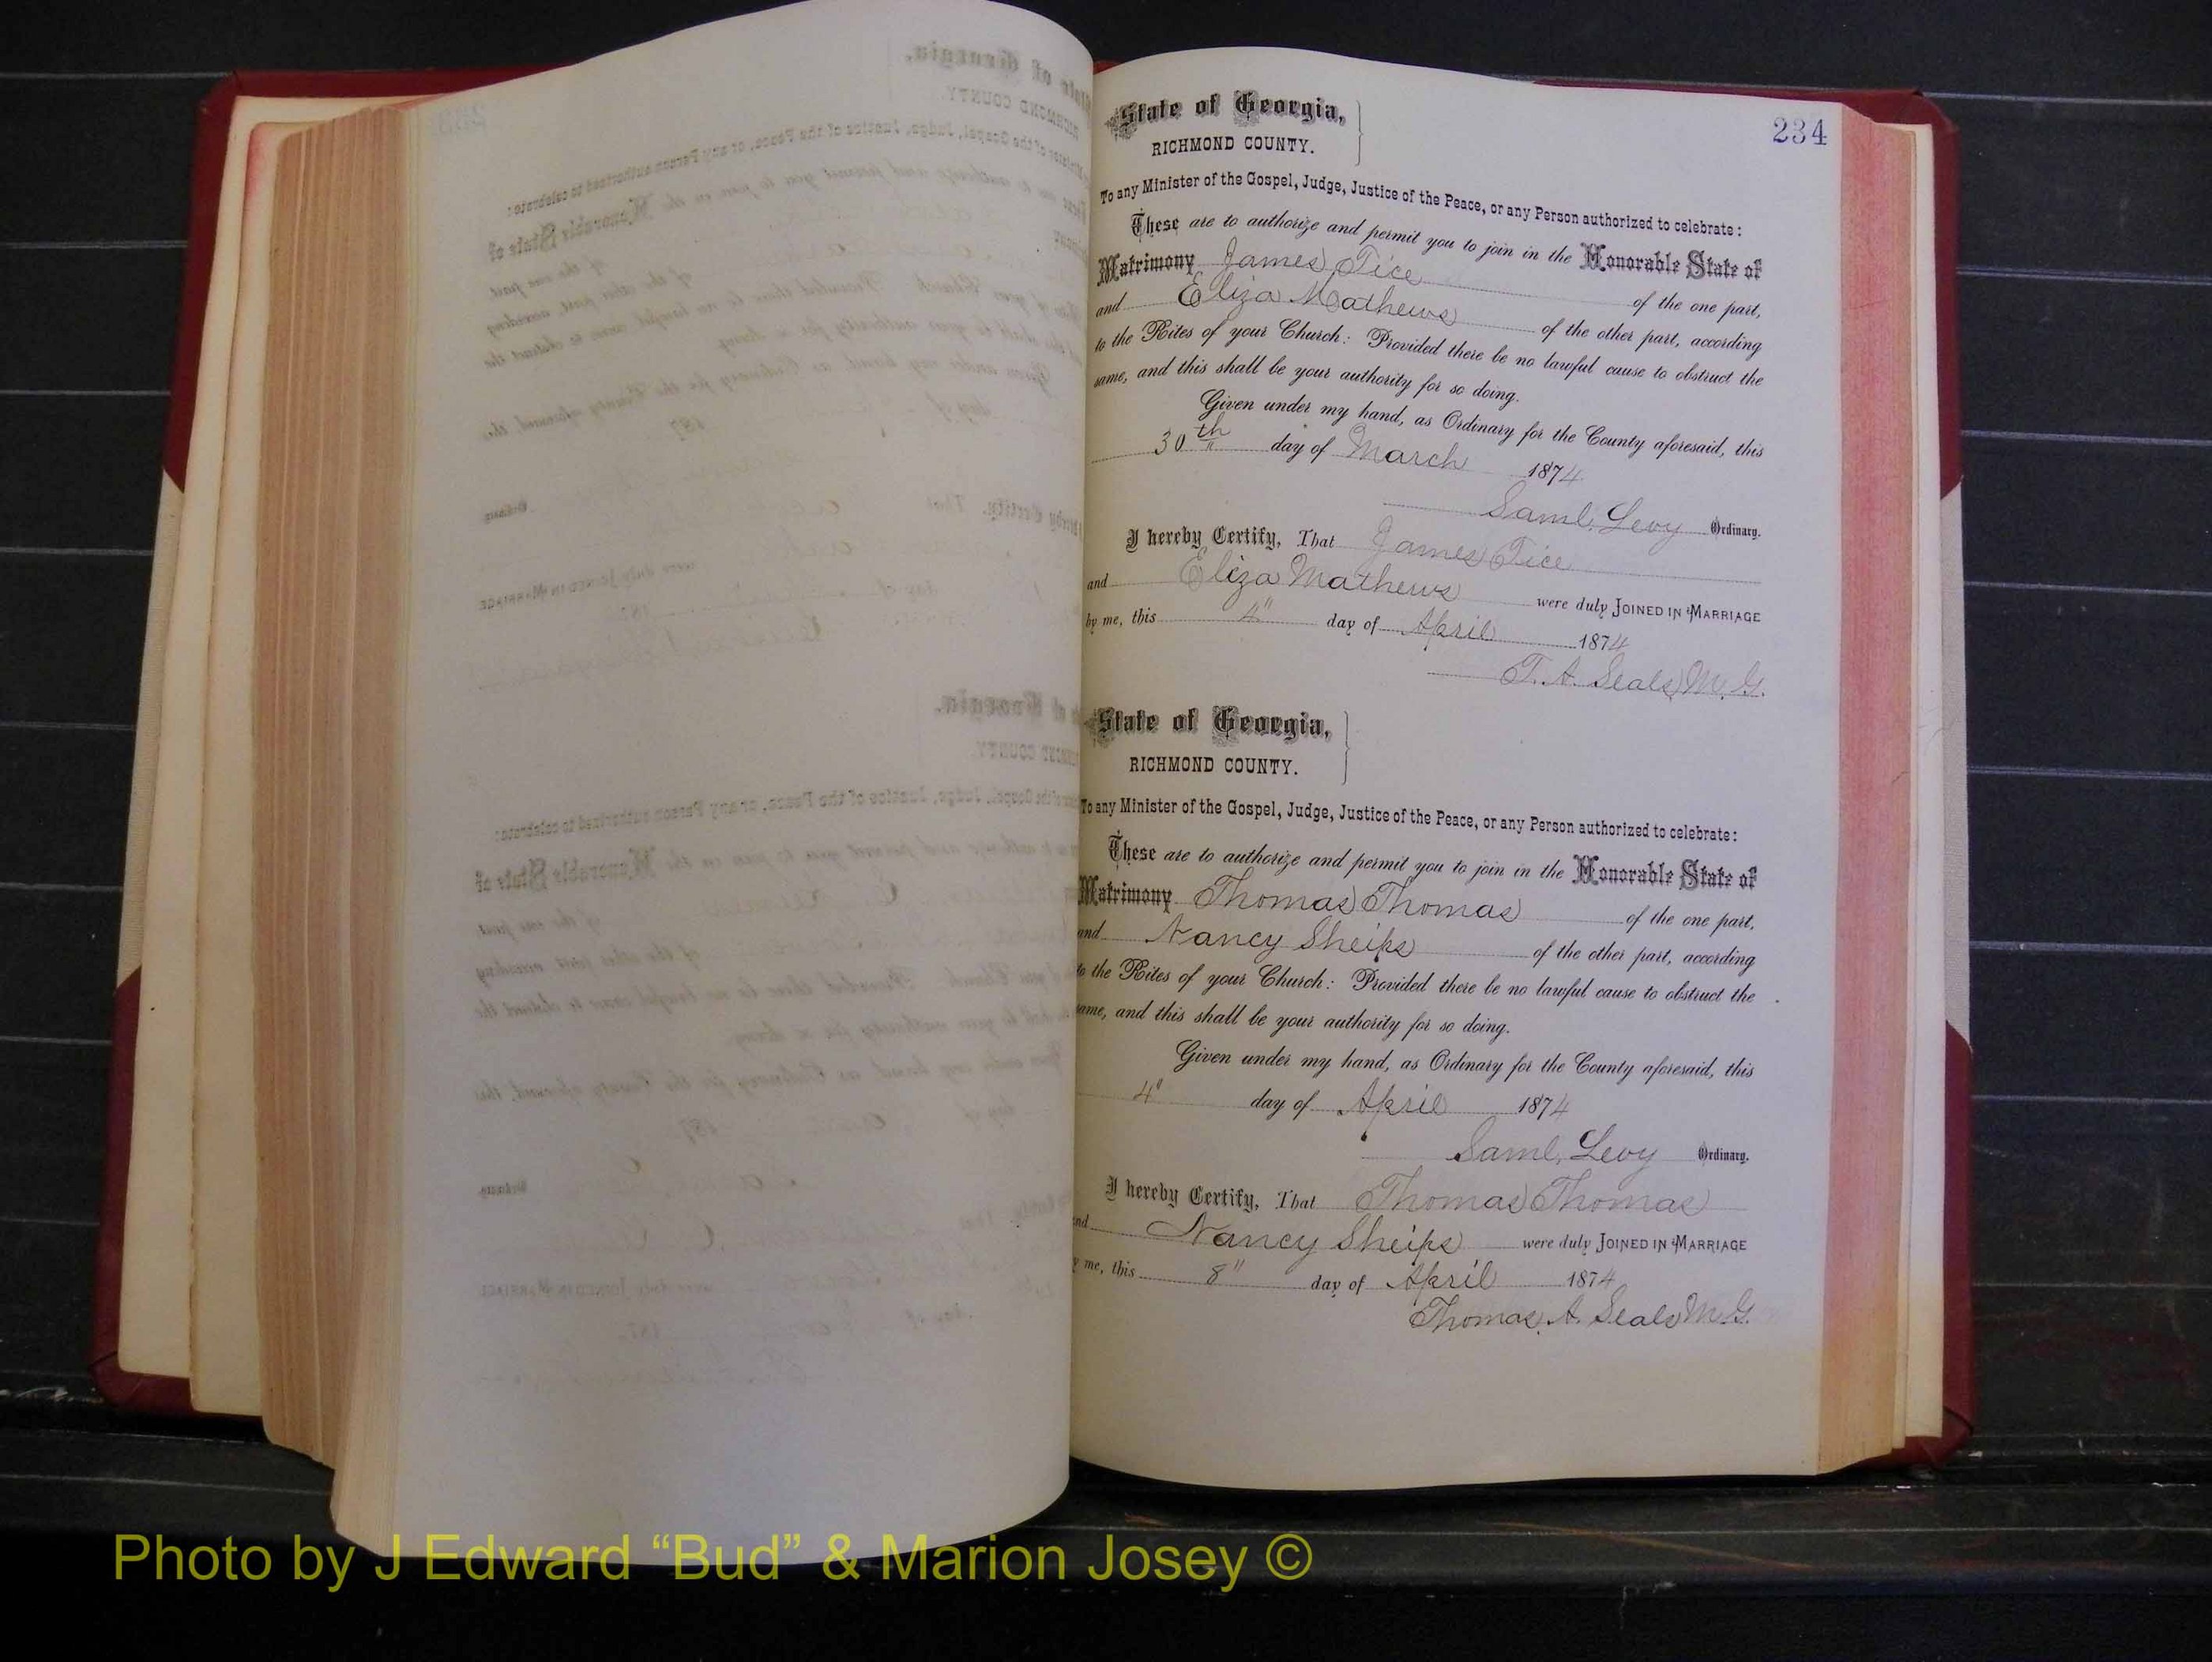 234
State of Georgia,
RICHMOND COUNTY.
To any Minister of the Gospel, Judge, Justice of the Peace, or any Person authorized to celebrate:
These are to authorize and permit you to join in the Honorable State of
Matrimony James Tice of the one part,
and Eliza Mathews of the other part, according
to the Rites of your Church: Provided there be no lawful cause to obstruct the
same, and this shall be your authority for so doing.
Given under my hand, as Ordinary for the County aforesaid, this
30th day of March 1874
Saml. Levy Ordinary.
I hereby Certify, That James Tice
and Eliza Mathews were duly JOINED IN MARRIAGE
by me, this 4" day of April 1874
T. A. Seals, M. G.
State of Georgia,
RICHMOND COUNTY.
To any Minister of the Gospel, Judge, Justice of the Peace, or any Person authorized to celebrate:
These are to authorize and permit you to join in the Honorable State of
Matrimony Thomas Thomas of the one part,
and Nancy Sheips of the other part, according
to the Rites of your Church: Provided there be no lawful cause to obstruct the
same, and this shall be your authority for so doing.
Given under my hand, as Ordinary for the County aforesaid, this
4" day of April 1874
Saml. Levy Ordinary.
I hereby Certify, That Thomas Thomas
and Nancy Sheips were duly JOINED IN MARRIAGE
by me, this 8" day of April 1874
Thomas A. Seals M. G.
Photo by J Edward “Bud” & Marion Josey ©